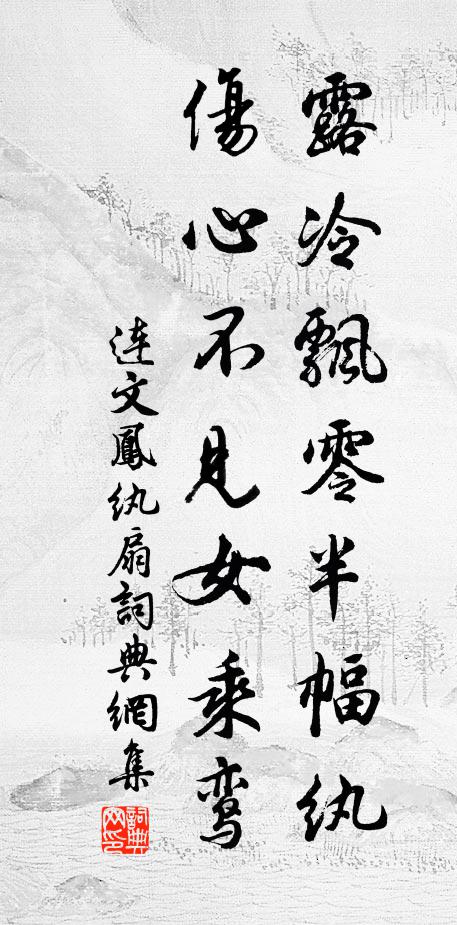 露冷飄零半幅紈
傷心不見女乘鸾
連文鳳紈扇詞典網集
詞典網印